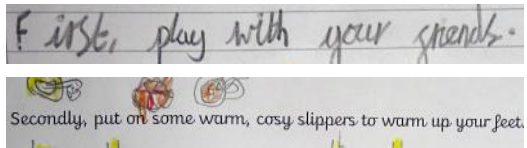 First, play with your friends.
Secondly, put on some warm, cosy slippers to warm up your feet.